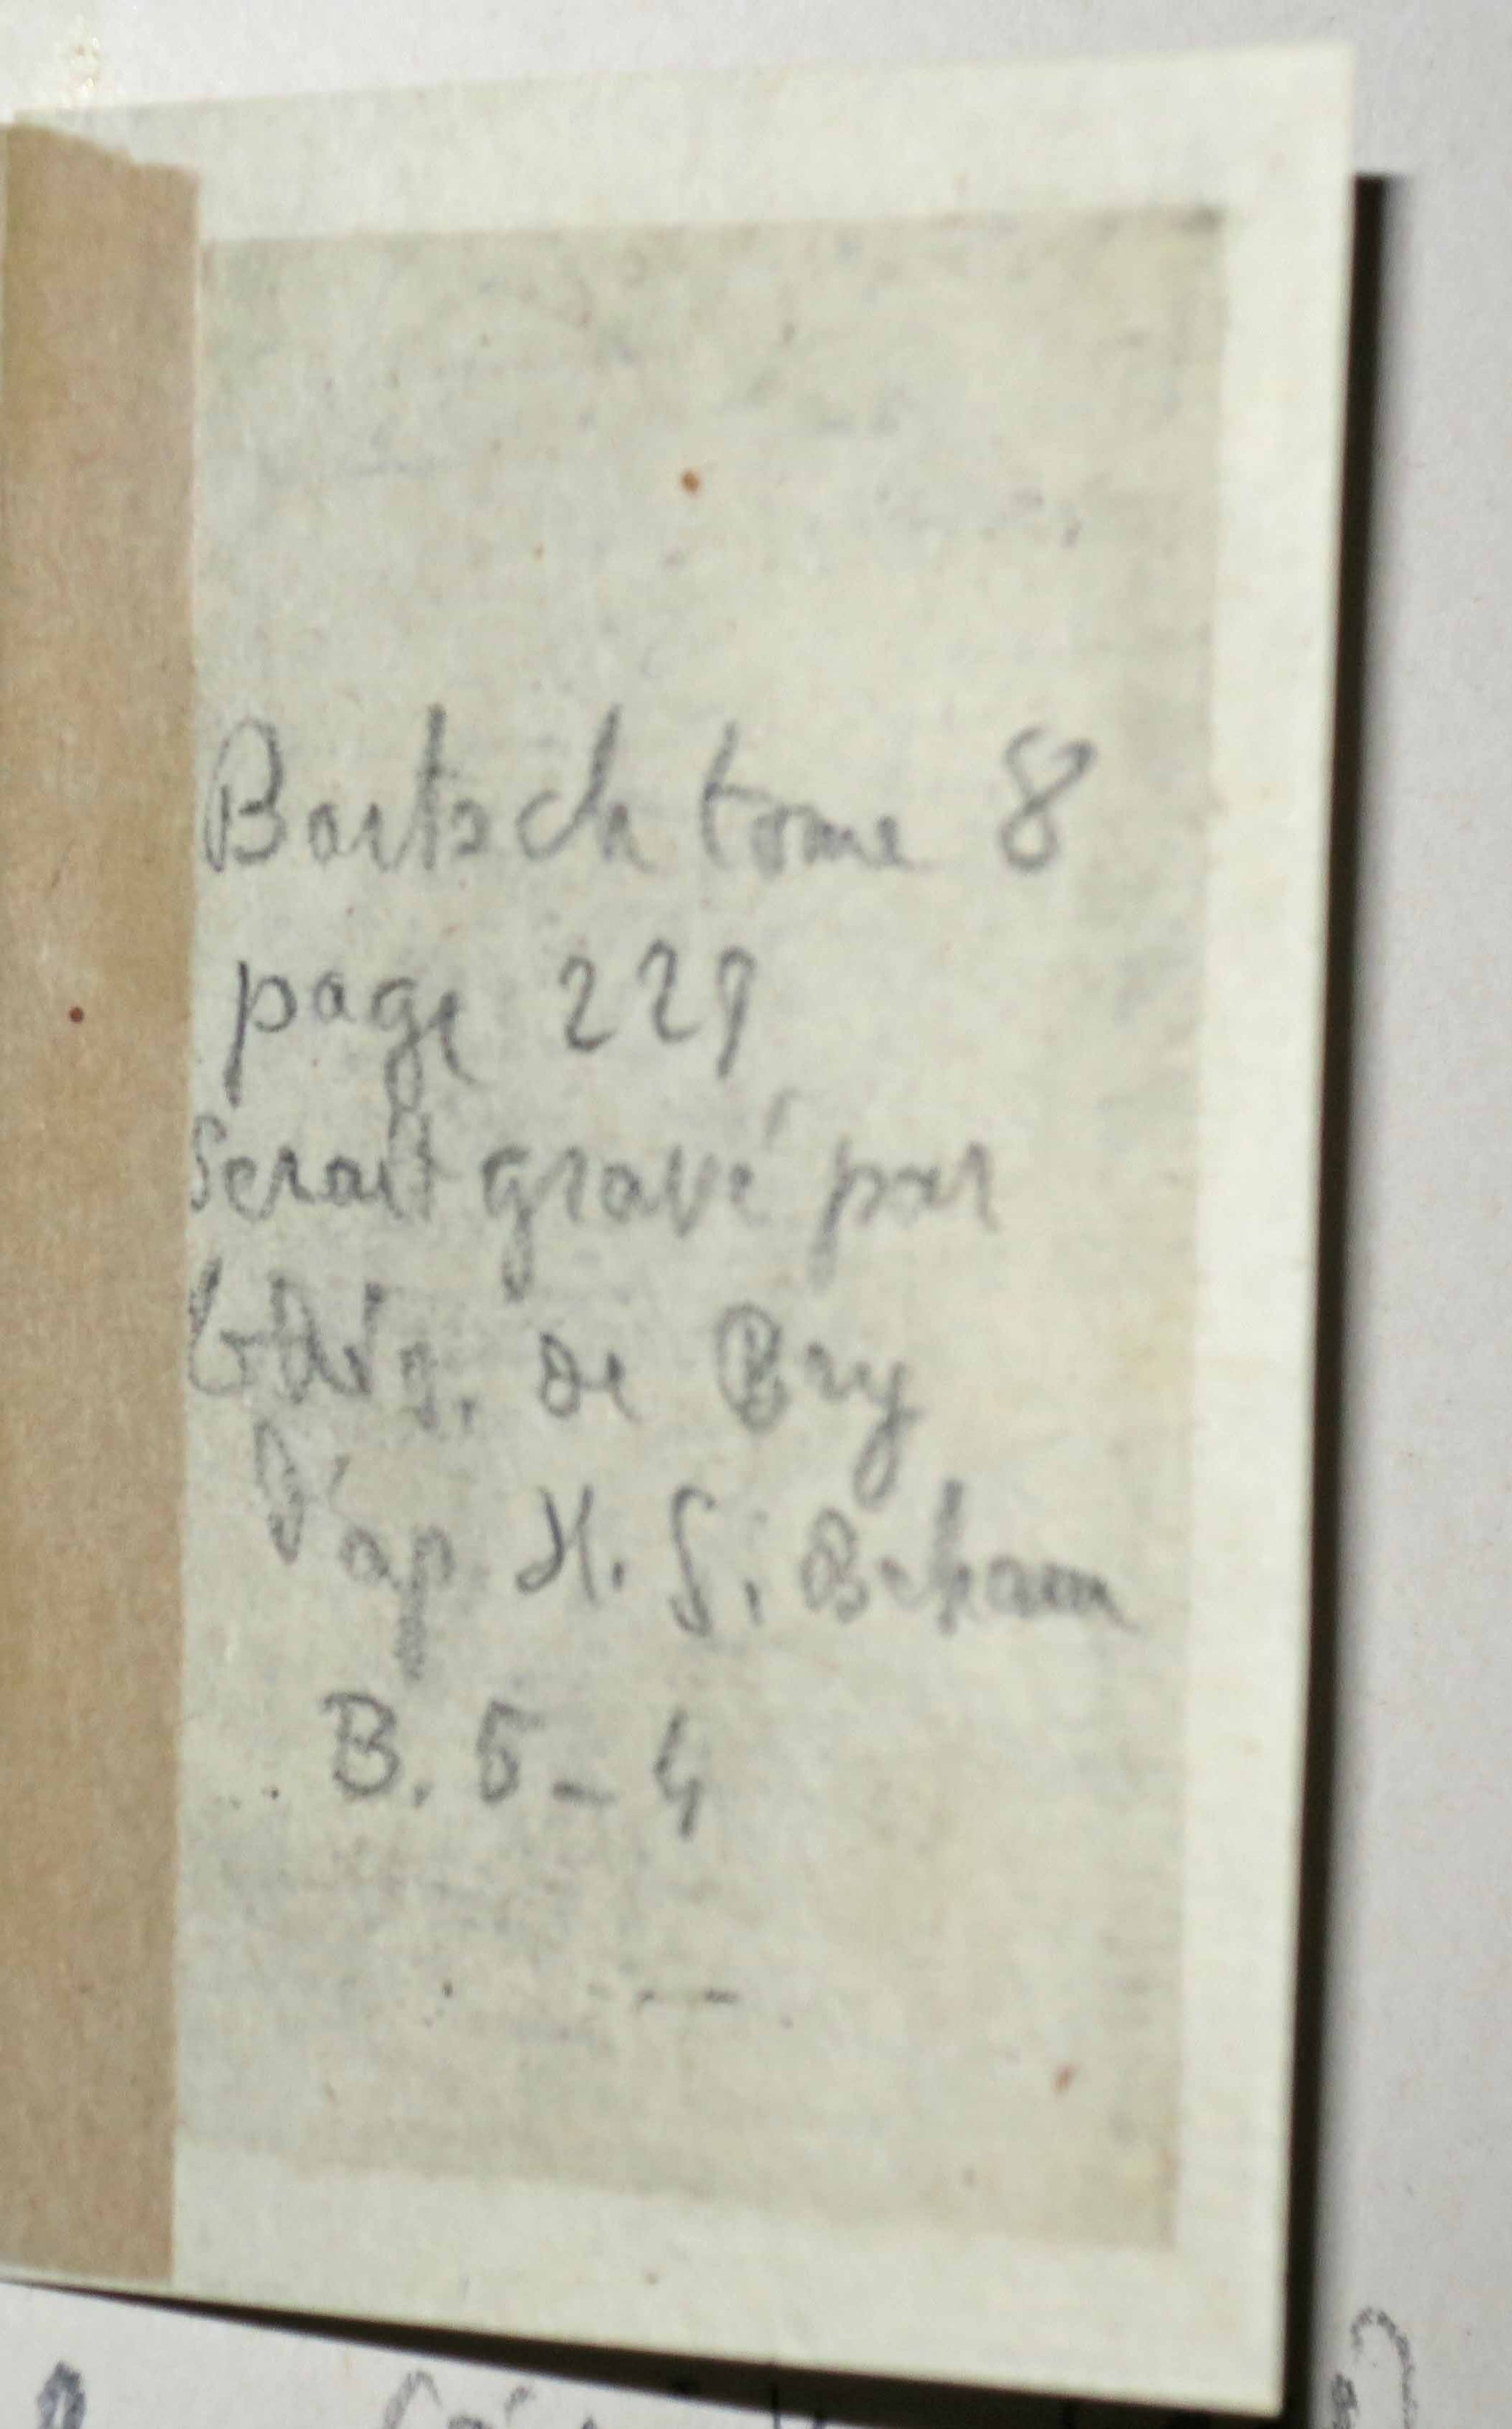 Bartsch tome 8
page 229
Serait gravé par
de Bry
D'ap. H. S. Beham
B. 5 - 4